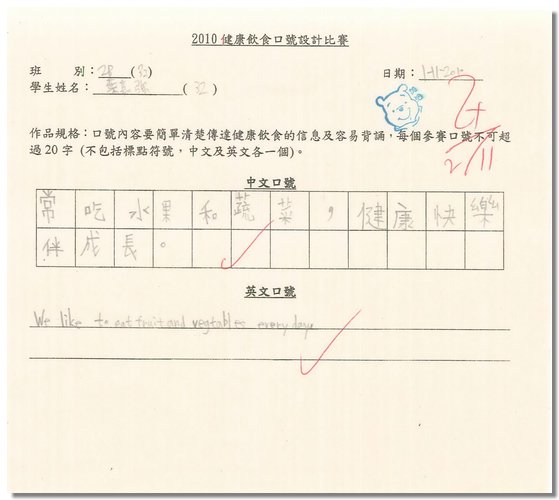 2010 健康飲食口號設計比賽
班 別：2B (32)
日期：1-11-2010
學生姓名： (32)
作品規格：口號內容要簡單清楚傳達健康飲食的信息及容易背誦，每個參賽口號不可超
過 20 字 (不包括標點符號，中文及英文各一個)。
2/11
中文口號
常吃水果和蔬菜，健康快樂
伴成長。
英文口號
We like to eat fruit and vegtables every day.